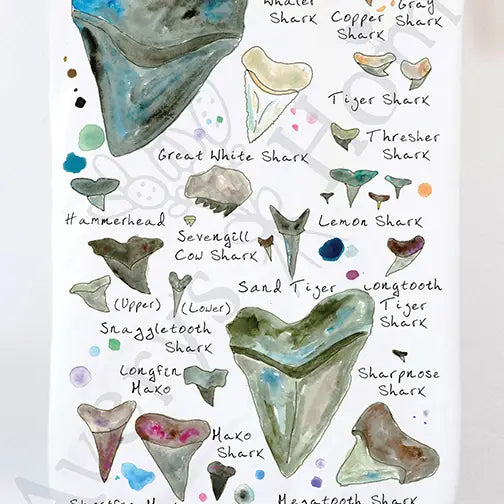 Whaler
Shark
Copper
Shark
Gray
Shark
Tiger Shark
Great White Shark
Thresher
Shark
Hammerhead
Sevengill
Cow Shark
Lemon Shark
Sand Tiger
Longtooth
Tiger
Shark
(Upper)
(Lower)
Snaggletooth
Shark
Longfin
Mako
Sharpnose
Shark
Mako
Shark
Shortfin Mako
Megatooth Shark